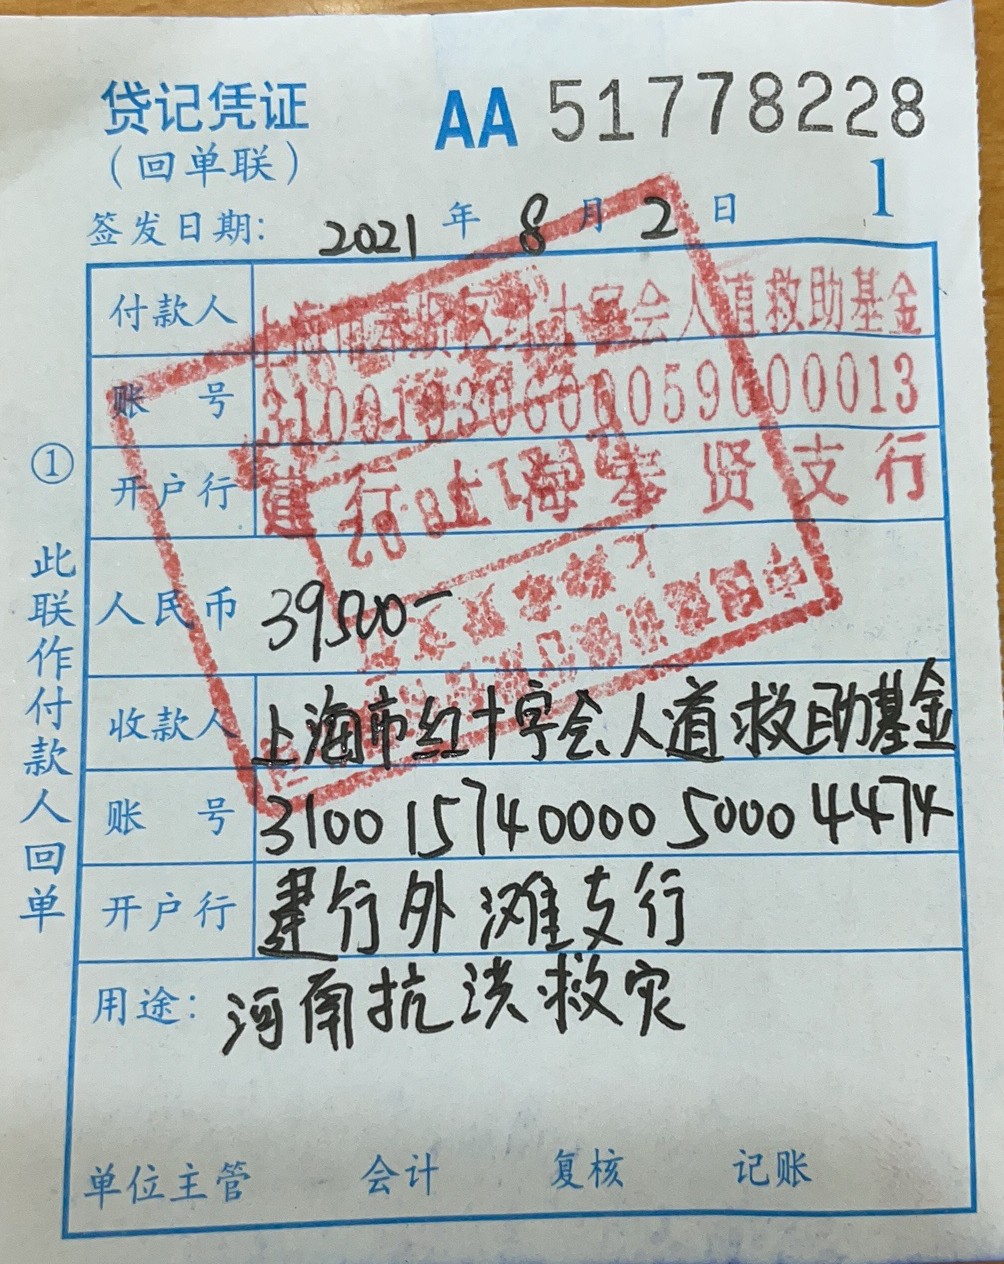 贷记凭证
AA 51778228
(回单联)
1
签发日期: 2021 年 8 月 2 日
付款人 上海市奉贤区红十字会人道救助基金
账 号
开户行 建行上海奉贤支行
人民币 39500-
收款人 上海市红十字会人道救助基金
账 号 31001574000050004474
开户行 建行外滩支行
用途: 河南抗洪救灾
单位主管 会计 复核 记账
① 此联作付款人回单